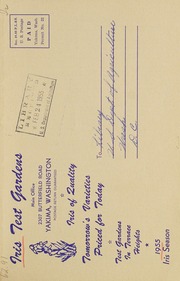 Iris Test Gardens
Main Office
2307 BUTTERFIELD ROAD
YAKIMA, WASHINGTON
Iris of Quality
Tomorrow's Varieties
Priced for Today
Test Gardens
In Terrace
Heights
1955
Iris Season
Sec. 34.66 P. L. & R.
U. S. Postage
PAID
Yakima, Wash.
LIBRARY
To
Library
D.C.